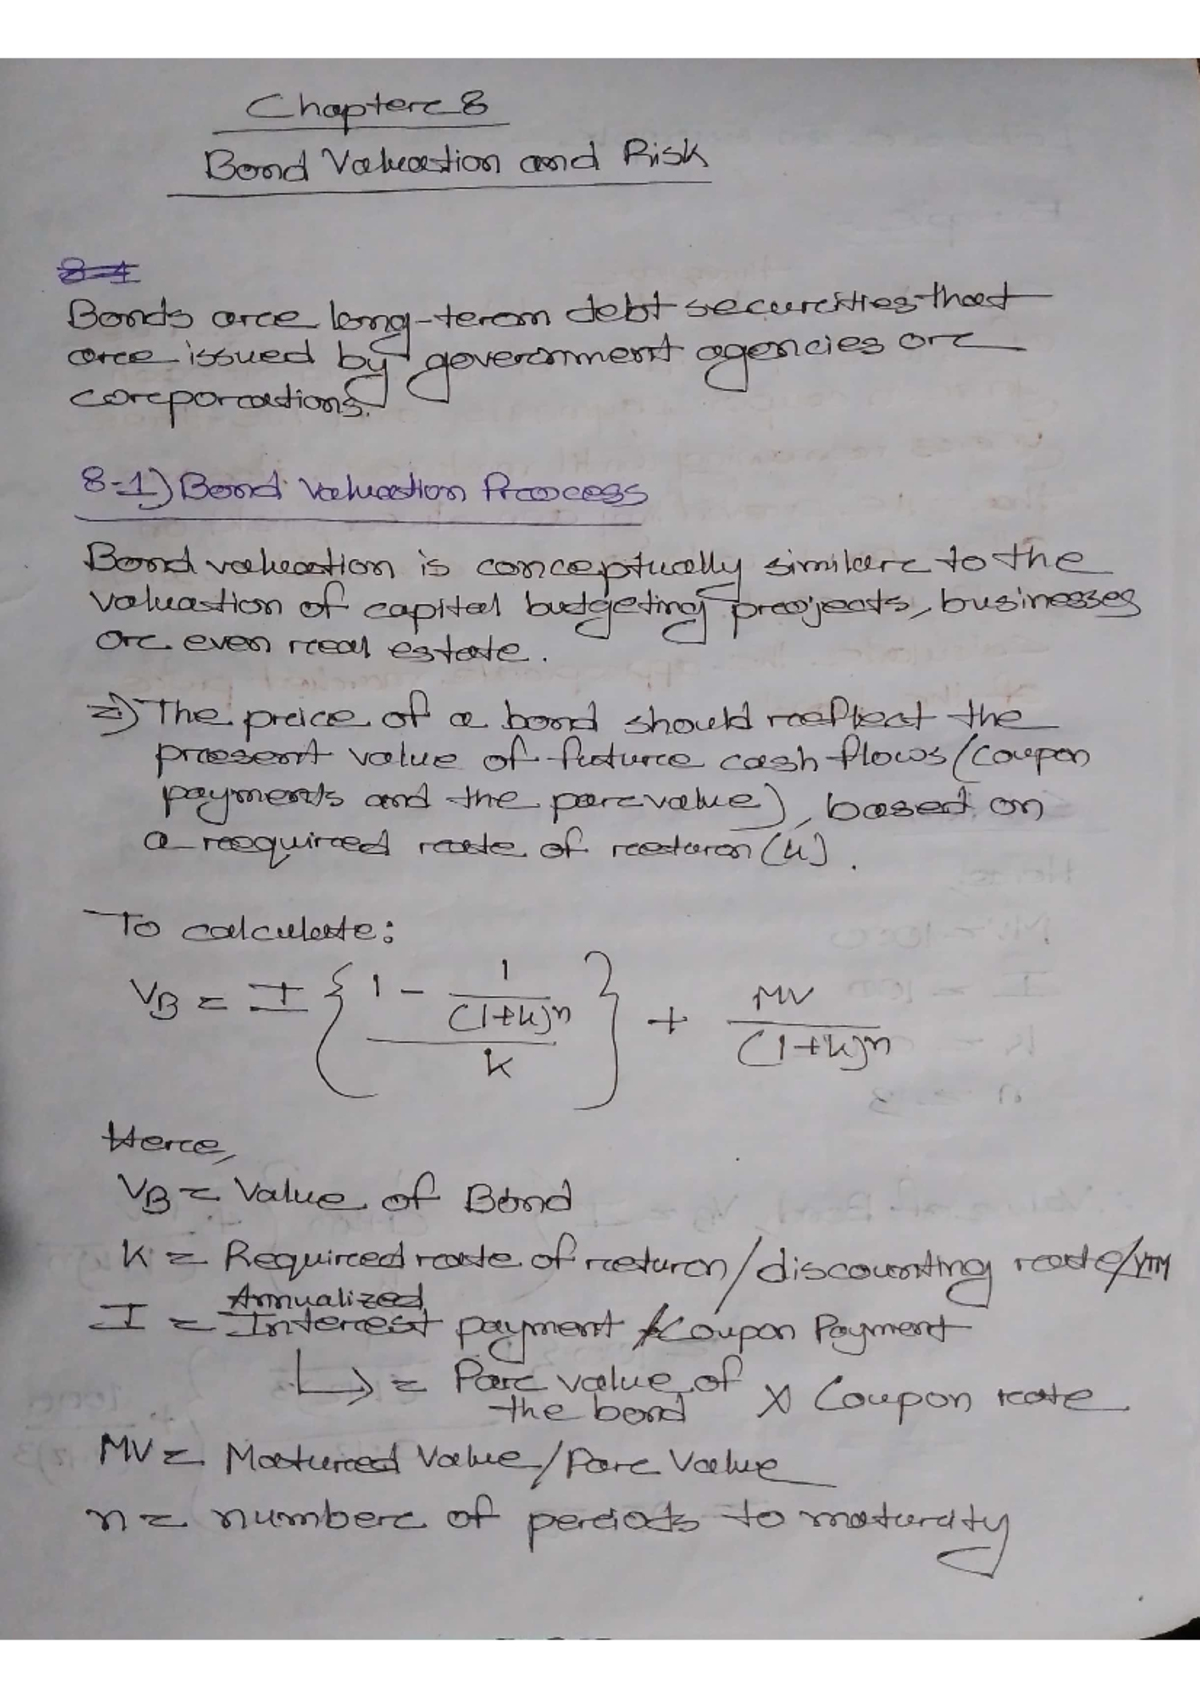 Chapter 8
Bond Valuation and Risk
8-1
Bonds are long-term debt securities that
are issued by government agencies or
corporations.
8-1) Bond Valuation Process
Bond valuation is conceptually similar to the
valuation of capital budgeting projects, businesses
or even real estate.
⇒) The price of a bond should reflect the
present value of future cash flows (coupon
payments and the par value), based on
a required rate of return (k).
To calculate:
V_B = I { (1 - 1/(1+k)^n) / k } + MV/(1+k)^n
Here,
V_B = Value of Bond
k = Required rate of return/discounting rate/YTM
Annualized
I = Interest payment / Coupon Payment
↳ = Par value of the bond × Coupon rate
MV = Matured Value/Par Value
n = number of periods to maturity